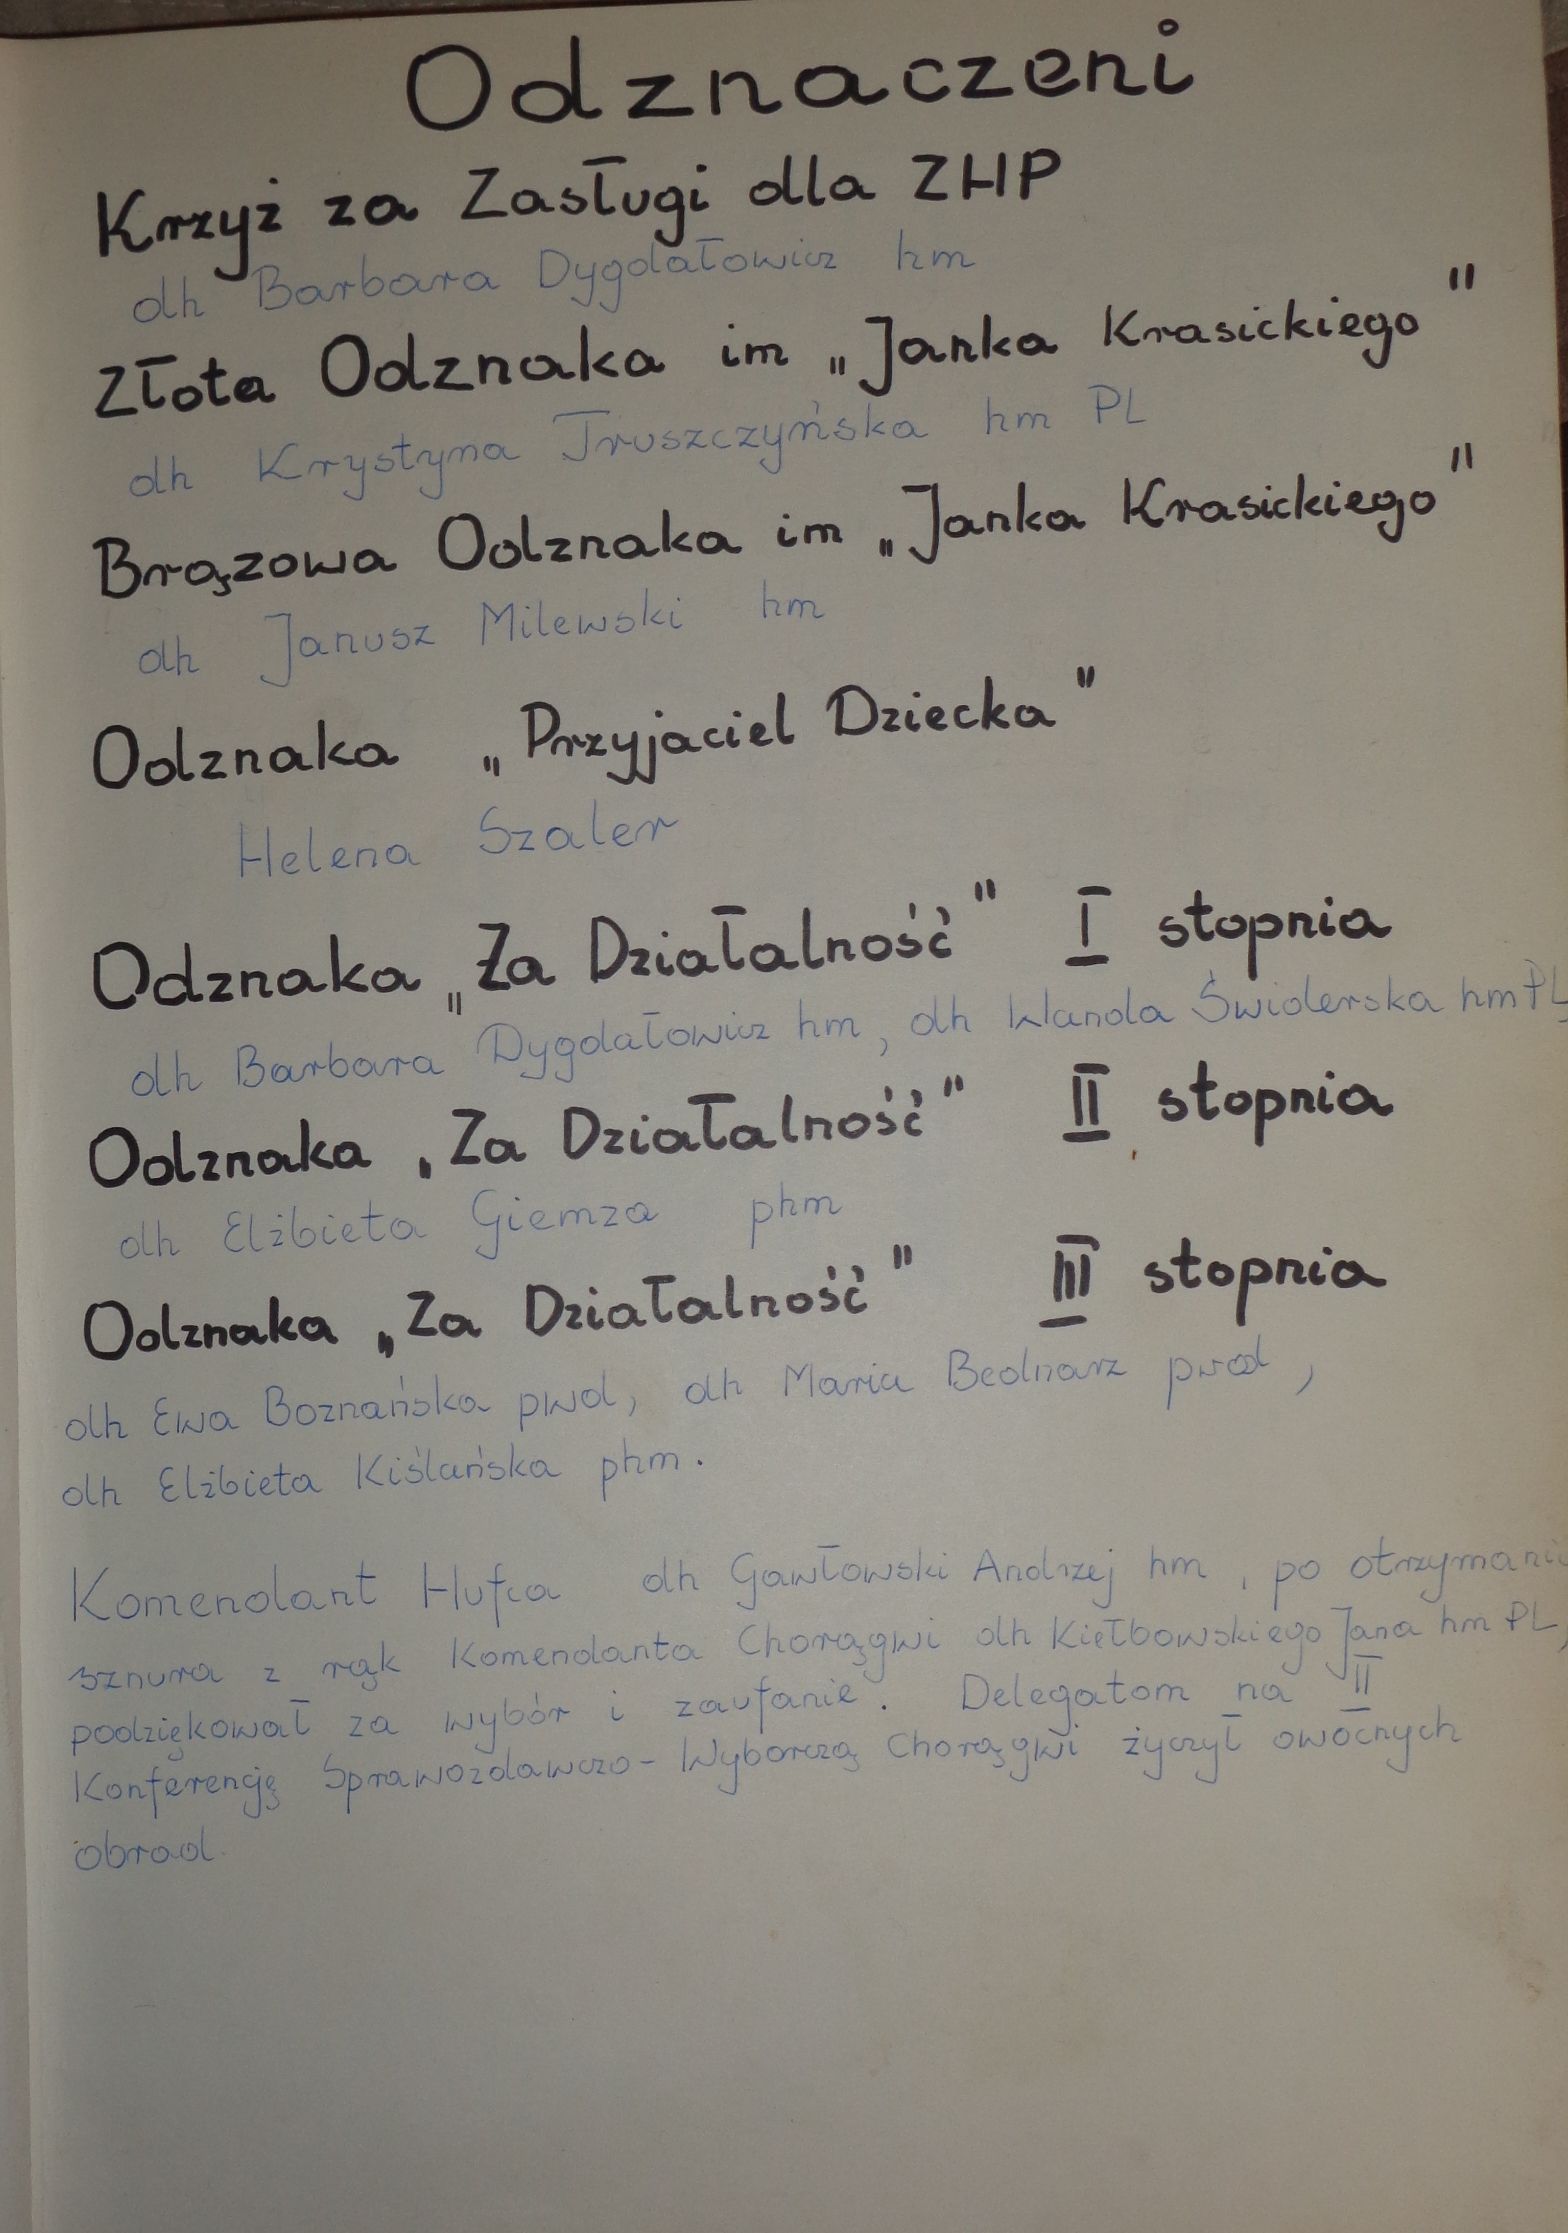 Odznaczeni
Krzyż za Zasługi dla ZHP
dh Barbara Dygdałowicz hm
Złota Odznaka im „Janka Krasickiego"
dh Krystyna Truszczyńska hm PL
Brązowa Odznaka im „Janka Krasickiego"
dh Janusz Milewski hm
Odznaka „Przyjaciel Dziecka"
Helena Szaler
Odznaka „Za Działalność" I stopnia
dh Barbara Dygdałowicz hm, dh Wanda Świderska hm PL
Odznaka „Za Działalność" II stopnia
dh Elżbieta Giemza phm
Odznaka „Za Działalność" III stopnia
dh Ewa Boznańska pwd, dh Maria Bednarz pwd,
dh Elżbieta Kiślańska phm.
Komendant Hufca dh Gawłowski Andrzej hm, po otrzymaniu
sznura z rąk Komendanta Chorągwi dh Kiełbowskiego Jana hm PL,
podziękował za wybór i zaufanie. Delegatom na II
Konferencję Sprawozdawczo-Wyborczą Chorągwi życzył owocnych
obrad.